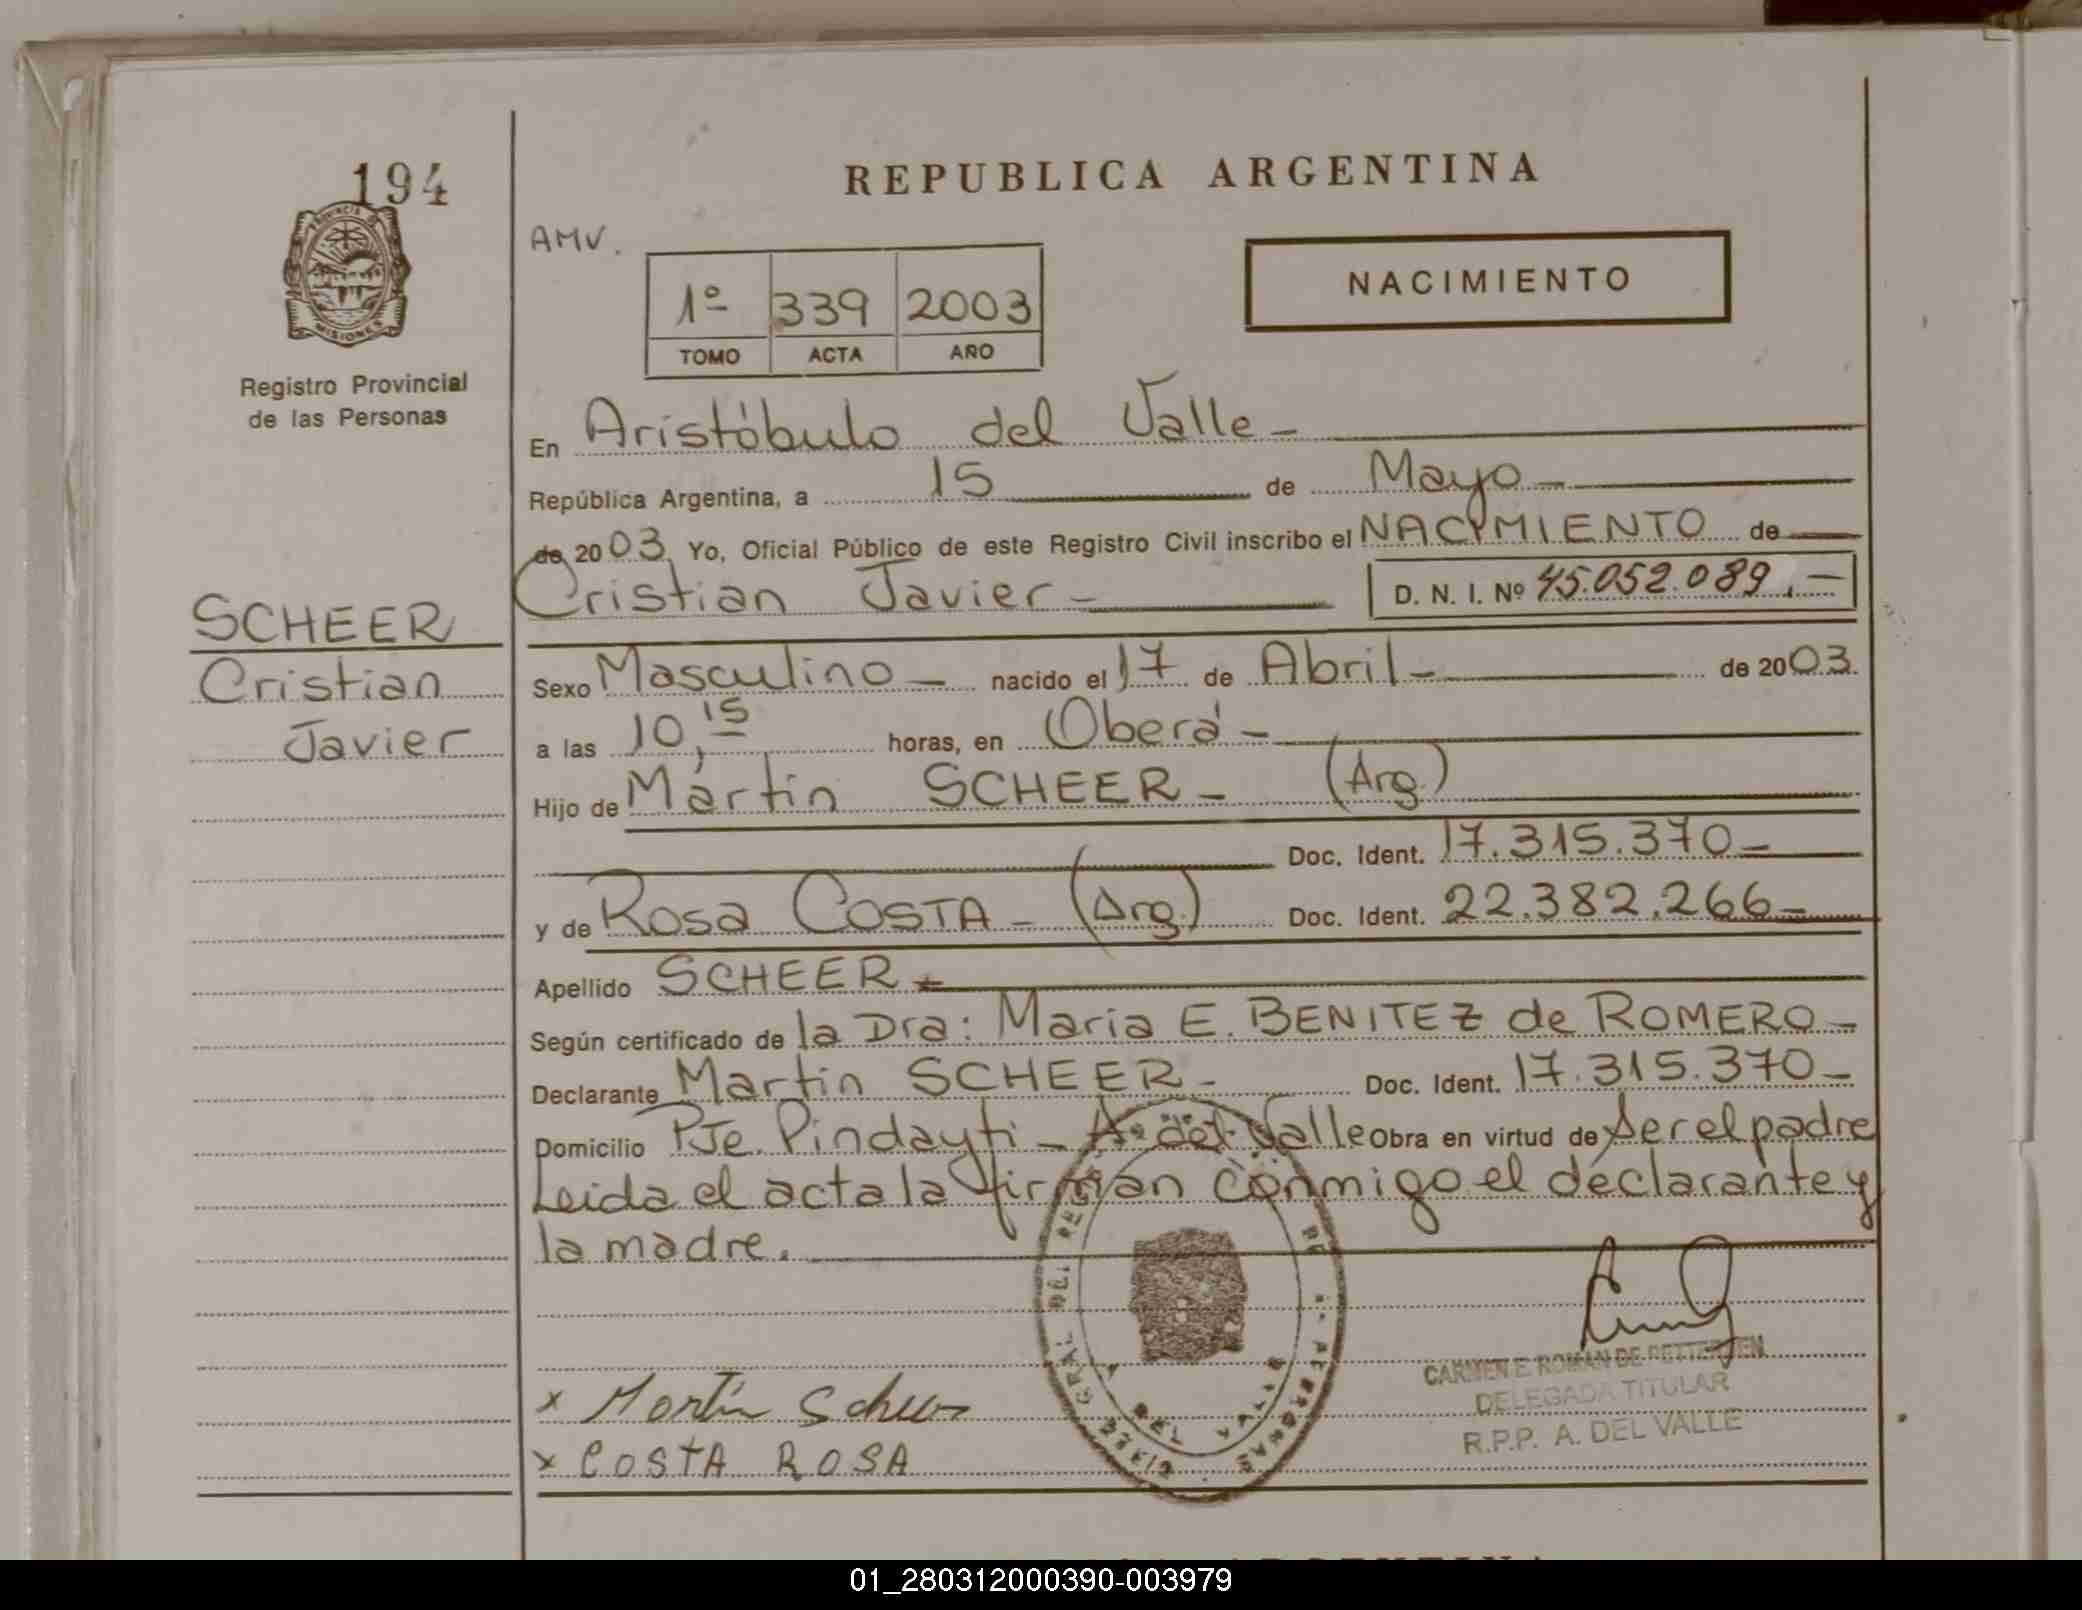 194
PROVINCIA DE
MISIONES
Registro Provincial
de las Personas
REPUBLICA ARGENTINA
AMV.
1º 339 2003
TOMO ACTA AÑO
NACIMIENTO
En Aristóbulo del Valle -
República Argentina, a 15 de Mayo -
de 2003 Yo, Oficial Público de este Registro Civil inscribo el NACIMIENTO de
Cristian Javier - D. N. I. Nº 45.052.089.-
SCHEER
Cristian
Javier
Sexo Masculino - nacido el 17 de Abril - de 2003.
a las 10,15 horas, en Oberá -
Hijo de Martin SCHEER - (Arg.)
Doc. Ident. 17.315.370 -
y de Rosa COSTA - (Arg.) Doc. Ident. 22.382.266 -
Apellido SCHEER -
Según certificado de la Dra: Maria E. BENITEZ de ROMERO -
Declarante Martin SCHEER - Doc. Ident. 17.315.370 -
Domicilio Pje. Pindayti - A. del Valle Obra en virtud de Ser el padre
Leida el acta la firman conmigo el declarante y
la madre.
x Martin Scheer
x COSTA ROSA
CARMEN E. ROMAN DE PETTERSEN
DELEGADA TITULAR
R.P.P. A. DEL VALLE
01_280312000390-003979